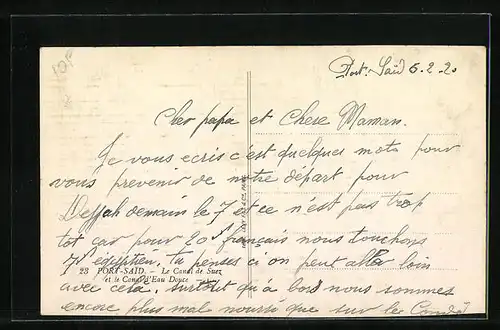 105
Port-Saïd 6.2.20
Cher papa et Chere Maman.
Je vous ecris c'est quelques mots pour
vous prevenir de notre départ pour
Deffah demain le 7 et ce n'est pas trop
tot car pour 20f français nous touchons
7f egiptien, tu penses ci on peut aller loin
23 PORT-SAID. - Le Canal de Suez
et le Canal d'Eau Douce
avec cela, surtout qu'a bord nous sommes
encore plus mal nourri que sur le